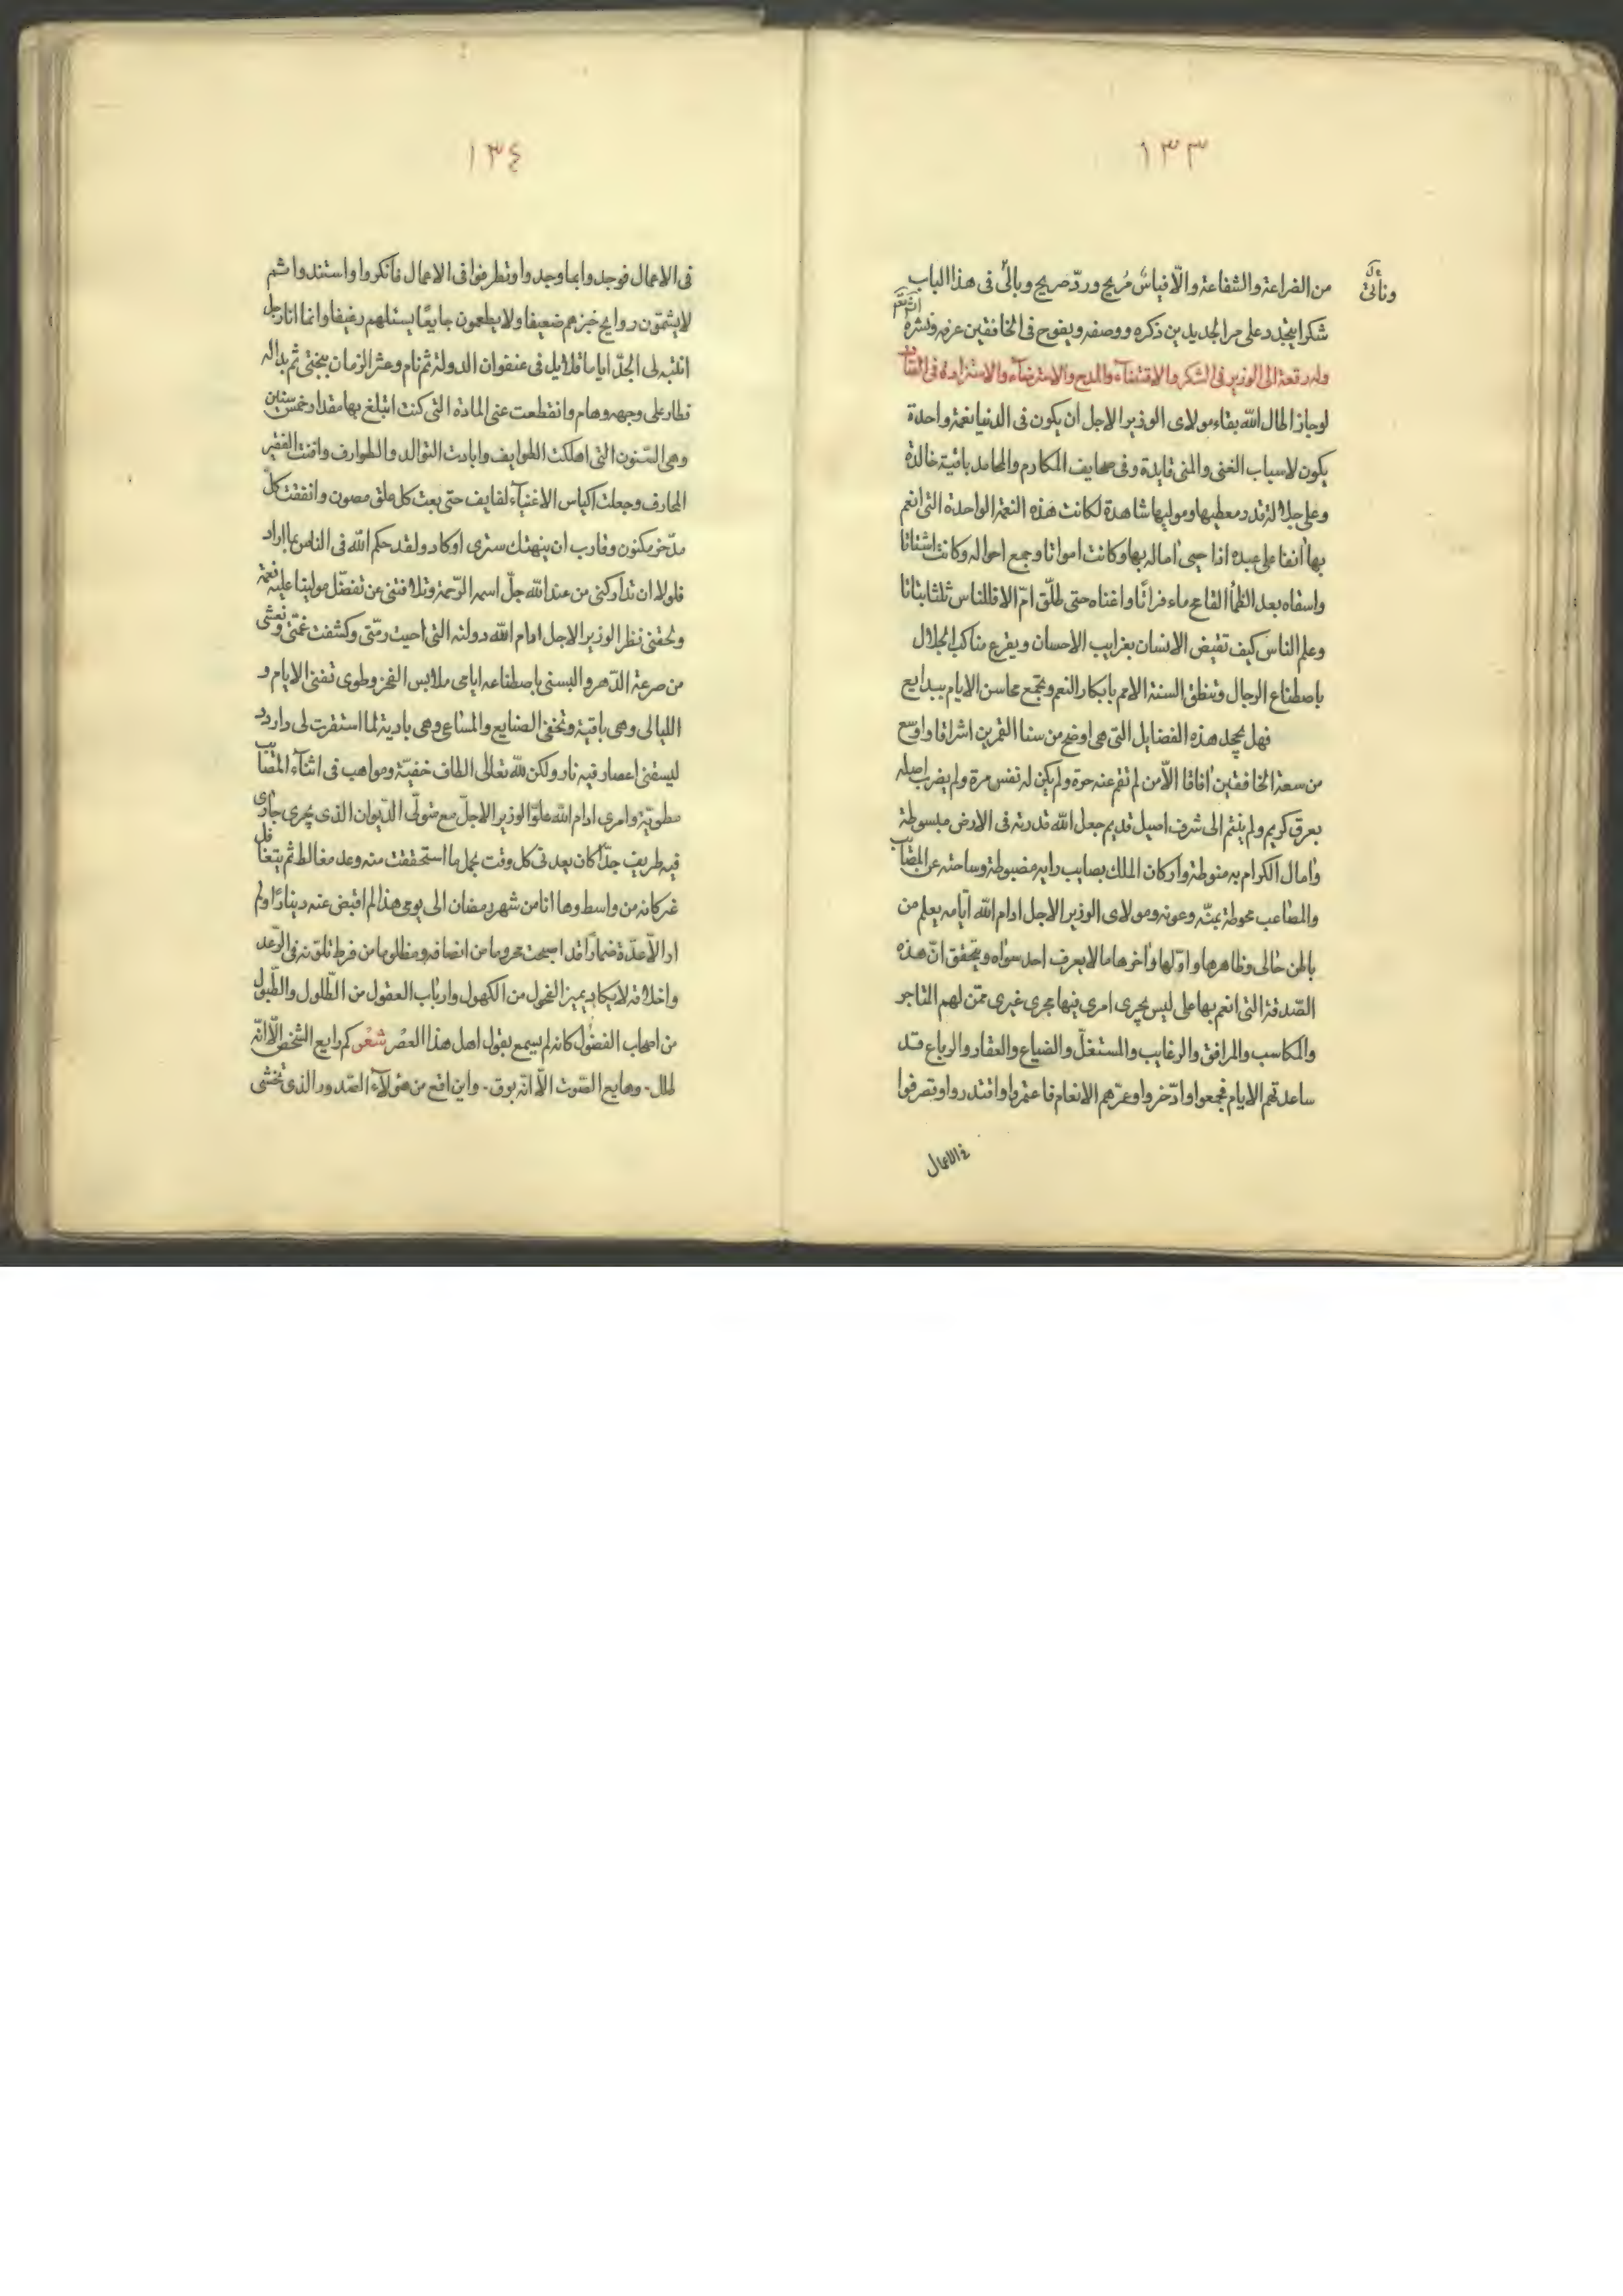 ١٣٣
من الضراعة والشفاعة والّا فياسٌ مُريح وردّ صريح وبأتى فى هذا الباب
ونأتى
شكرا يتجدد على مر الجديدين ذكره ووصفه ويفوح فى الخافقين عرفه ونشره
وله رقعة الى الوزير فى الشكر والاقتضاء والمدح والاسترضاء والاستزادة فى
لو جاز اطال الله بقاء مولاى الوزير الاجل ان يكون فى الدنيا نعمة واحدة
يكون لاسباب الغنى والمنى قايدة وفى صحايف المكارم والمحامد باقية خالدة
وعلى جلالة قدر معطيها وموليها شاهدة لكانت هذه النعمة الواحدة التى انعم
بها آنفا على عبده اذا حيى اماله بها وكانت امواتا وجمع احواله وكانت اشتاتا
واسقاه بعد الظمأ القاع ماء فراتًا واغناه حتى طلّق امّ الاقلالناس ثلثا بتاتا
وعلم الناس كيف تقيض الانسان بغرايب الاحسان ويفرع مناكب الجلال
باصطناع الرجال وتنطق السنة الامم بابكار النعم وتجمع محاسن الايام ببدايع
فهل يجحد هذه الفضايل التى هى اوضح من سنا القمرين اشراقا واوسع
من سعة الخافقين افاقا الّا من لم تقم عنه حرة ولم يكن له نفس مرة ولم يضرب اصله
بعرق كريم ولم ينتم الى شرف اصيل قديم جعل الله قدرته فى الارض مبسوطة
وامال الكرام به منوطة واركان الملك بصايب رايه مضبوطة وساحته عن المصايب
والمصاعب محوطة بمنّه وعونه ومولاى الوزير الاجل ادام الله ايّامه يعلم من
باطن حالى وظاهرها واوّلها وآخرها ما لا يعرف احد سواه ويتحقق انّ هذه
الصّدقة التى انعم بها على ليس يجرى امرى فيها مجرى غيرى ممّن لهم المتاجر
والمكاسب والمرافق والرغايب والمستغلّ والضياع والعقار والرباع قد
ساعدتهم الايام فجمعوا وادّخروا وعزهم الانعام فاعتمروا واقتدروا وتصرفوا
فى الاعمال
١٣٤
فى الاعمال فوجدوا بما وجدوا وتطرفوا فى الاعمال فانكروا واستندوا ثم
لا يشمّون روايح خبزهم ضعيفا ولا يطعمون جايعًا يسئلهم رغيفا وانما انا رجل
انتبه لى الجدّ اياما قلايل فى عنفوان الدولة ثم نام وعثر الزمان ببختى ثم بدا له
فطار على وجهه وهام وانقطعت عنى المادة التى كنت اتبلغ بها مقدار خمس سنين
وهى السّنون التى اهلكت الطوايف وابادت التوالد والطوارف وافنت الفقير
المحارف وجعلت اكياس الاغنياء لفايف حتى بعت كل علق مصون وانفقت كلّ
مدّخر مكنون وقارب ان ينهتك سترى او كاد ولقد حكم الله فى الناس بما اراد
فلولا ان تداركنى من عند الله جلّ اسمه الرّحمة وتلافتنى من تفضّل مولينا عليه نعمة
ولحقنى نظر الوزير الاجل ادام الله دولته التى احيت رمّتى وكشفت غمّتى ونعشى
من صرعة الدّهر والبسنى باصطناعه ايامى ملابس الفخر وطوى تفنى الايام و
الليالى وهى باقية وتخفى الصنايع والمساعى وهى بادية لما استقرت لى دار ود
ليسقنى اعصار فيه نار ولكن لله تعالى الطاف خفيّة ومواهب فى اثناء المصايب
مطويّة وامرى ادام الله علوّ الوزير الاجلّ مع متولّى الدّيوان الذى يجرى جارى
فيه طريف جدّا كان يعدنى كل وقت بجمل ما استحققت منه وعد مغالط ثم يتغافل
عنى كانه من واسط وها انا من شهر رمضان الى يومى هذا لم اقبض عنه دينارًا ولم
ار الّا عدّة ضمارًا قد اصبحت محروما من انصافه ومظلوما من فرط تلوّنه فى الوعد
واخلافه لا يكاد يميز الفحول من الكهول وارباب العقول من الطّلول والطّبول
من اصحاب الفضول كانه لم يسمع بقول اهل هذا العصر شعر كم رايع الشخص الّا انّه
طلل - وهايع الصّوت الّا انّه بوق - واين اقع من هؤلاء الصّدور الذى تخشى